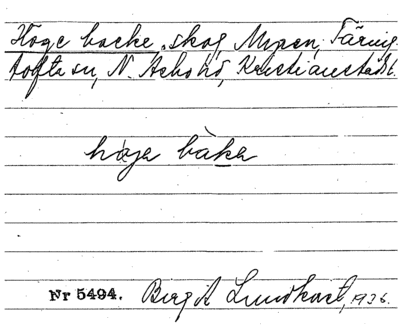 Höge backe, skog, Myren, Färing
tofta sn, N. Åsbo hd, Kristianstads l.
höga bàka
Nr 5494. Birgit Lundkvist, 1936.